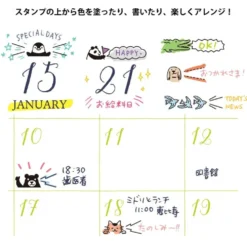 スタンプの上から色を塗ったり、書いたり、楽しくアレンジ！
SPECIAL DAYS
HAPPY
OK!
15
21
おつかれさま!
JANUARY
お給料日
TODAY'S NEWS
10
11
12
18:30
歯医者
図書館
17
18
ミドリとランチ
11:00 恵比寿
19
たのしみー!!